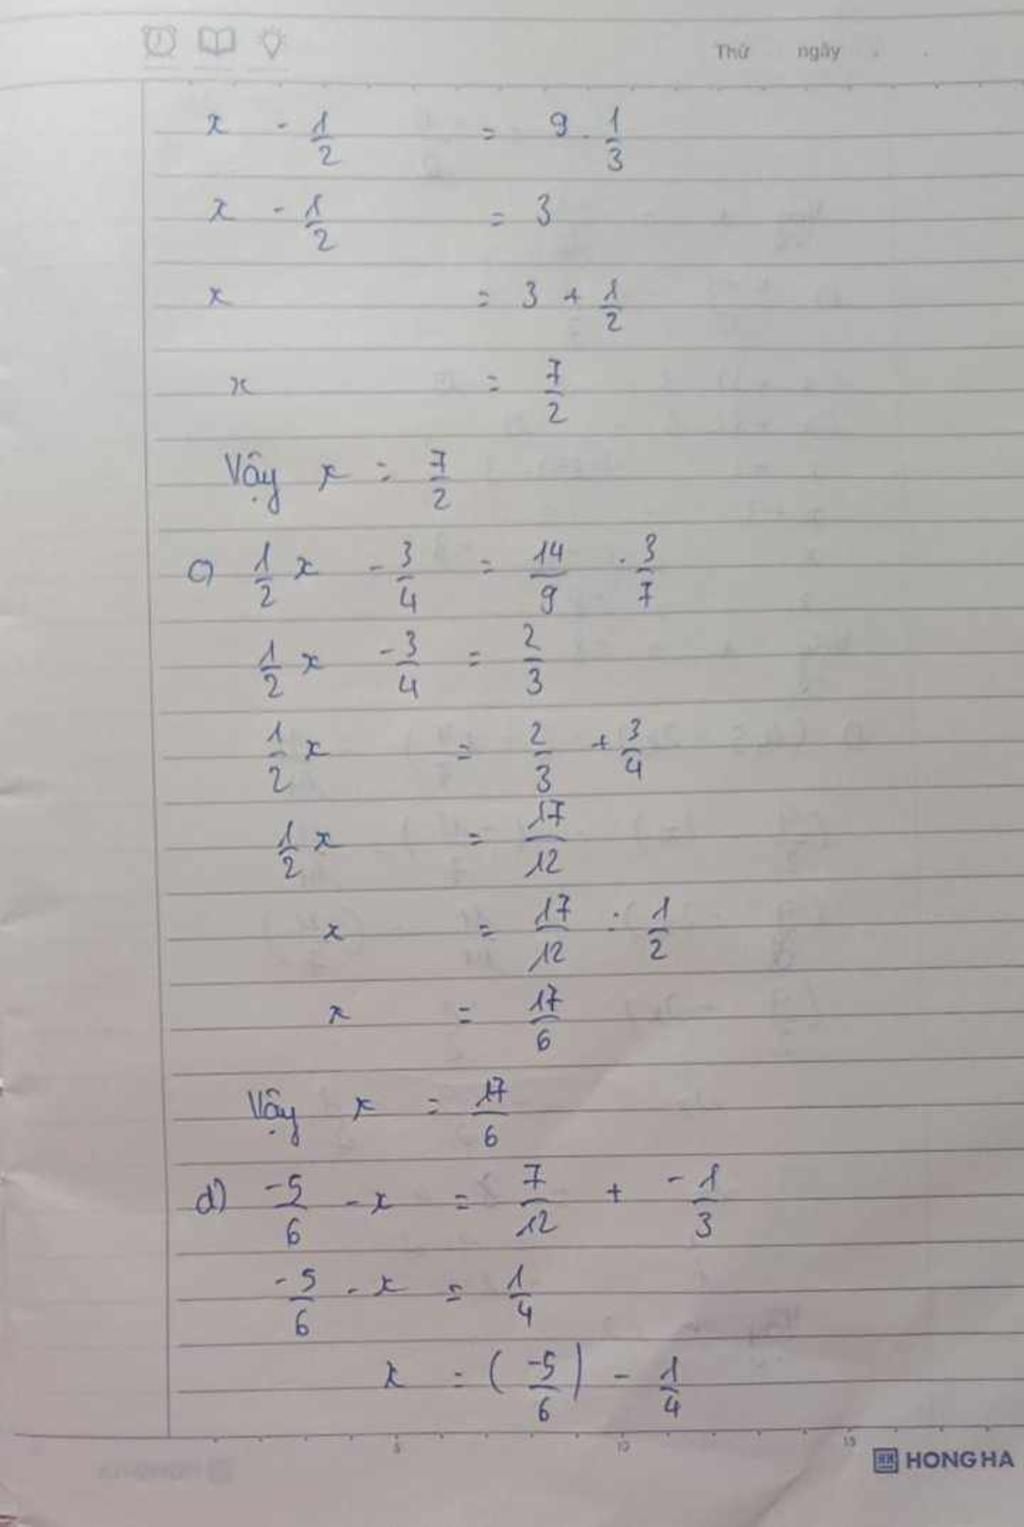 Thứ ngày
x - 1/2 = 9 . 1/3
x - 1/2 = 3
x = 3 + 1/2
x = 7/2
Vậy x = 7/2
c) 1/2 x - 3/4 = 14/9 . 3/7
1/2 x - 3/4 = 2/3
1/2 x = 2/3 + 3/4
1/2 x = 17/12
x = 17/12 : 1/2
x = 17/6
Vậy x = 17/6
d) -5/6 - x = 7/12 + -1/3
-5/6 - x = 1/4
x = (-5/6) - 1/4
5 10 15
HONG HA